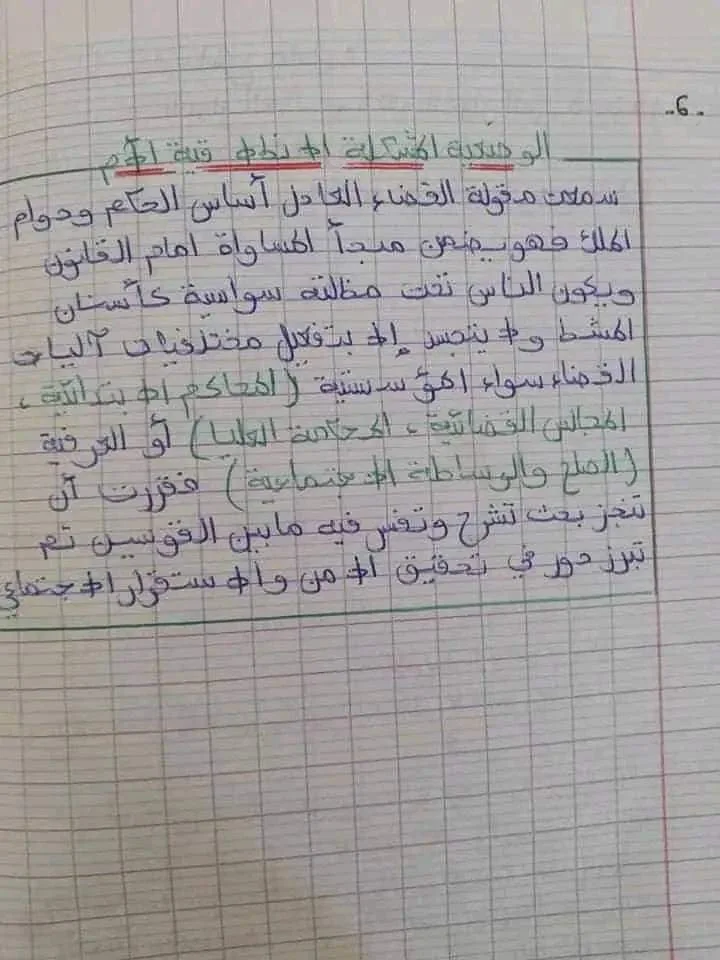 -6-
الوضعية المشكلة الانطلاقية الأم
سمعت مقولة القضاء العادل أساس الحكم ودوام
الملك فهو يضمن مبدأ المساواة امام القانون
ويكون الناس تحت مظلته سواسية كأسنان
المشط ولا يتجسد إلا بتفعيل مختلف آليات
القضاء سواء المؤسستية (المحاكم الابتدائية،
المجالس القضائية، المحكمة العليا) أو العرفية
(الصلح والوساطة الاجتماعية) فقررت أن
تنجز بحث تشرح وتفسر فيه مابين القوسين تم
تبرز دور في تحقيق الامن والاستقرار الاجتماعي